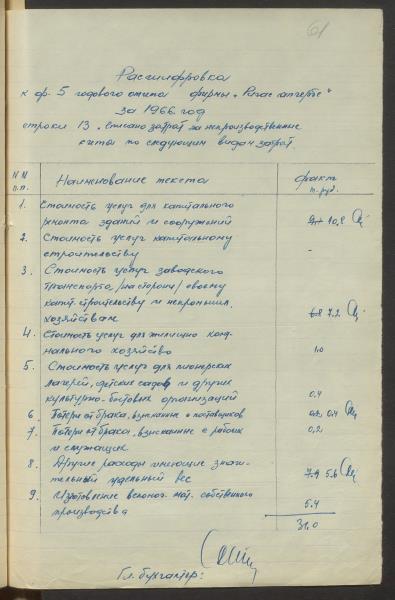 61
Расшифровка
к ф. 5 годового отчета фирмы „Ригас апгербс"
за 1966 год
строки 13 „Списано затрат на непроизводственные
счета по следующим видам затрат.
NN п.п.
Наименование текста
факт т. руб.
1. Стоимость услуг для капитального
ремонта зданий и сооружений 10,2
2. Стоимость услуг капитальному
строительству -
3. Стоимость услуг заводского
транспорта /на стороны/ своему
капит. строительству и непромышл.
хозяйствам 6.8 7.2
4. Стоимость услуг для жилищно ком-
нального хозяйства 1.0
5. Стоимость услуг для пионерских
лагерей, детских садов и других
культурно-бытовых организаций 0.4
6. Потери от брака, взысканные с поставщиков 0.4
7. Потери от брака, взысканные с рабочих
и служащих 0,2
8. Другие расходы имеющие значи-
тельный удельный вес 7.4 5.6
9. Изготовление вспомог. мат. собственного
производства 5.4
31,0
Гл. бухгалтер: